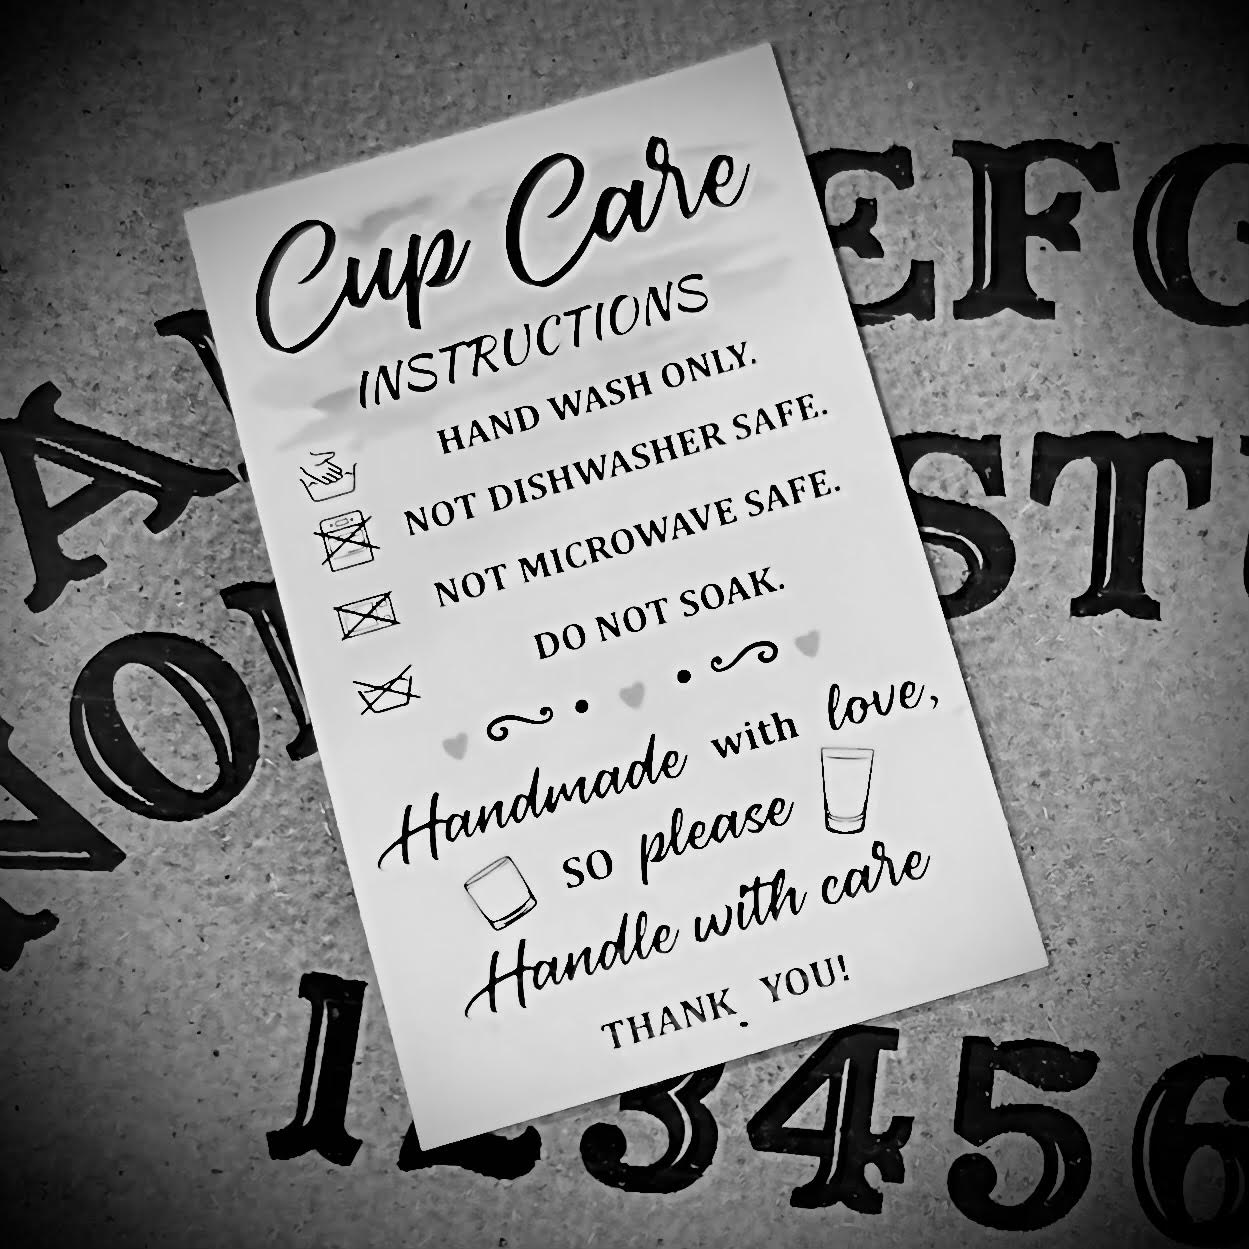 Cup Care
INSTRUCTIONS
HAND WASH ONLY.
NOT DISHWASHER SAFE.
NOT MICROWAVE SAFE.
DO NOT SOAK.
Handmade with love,
so please
Handle with care
THANK YOU!
A EFG
VON ST
123456